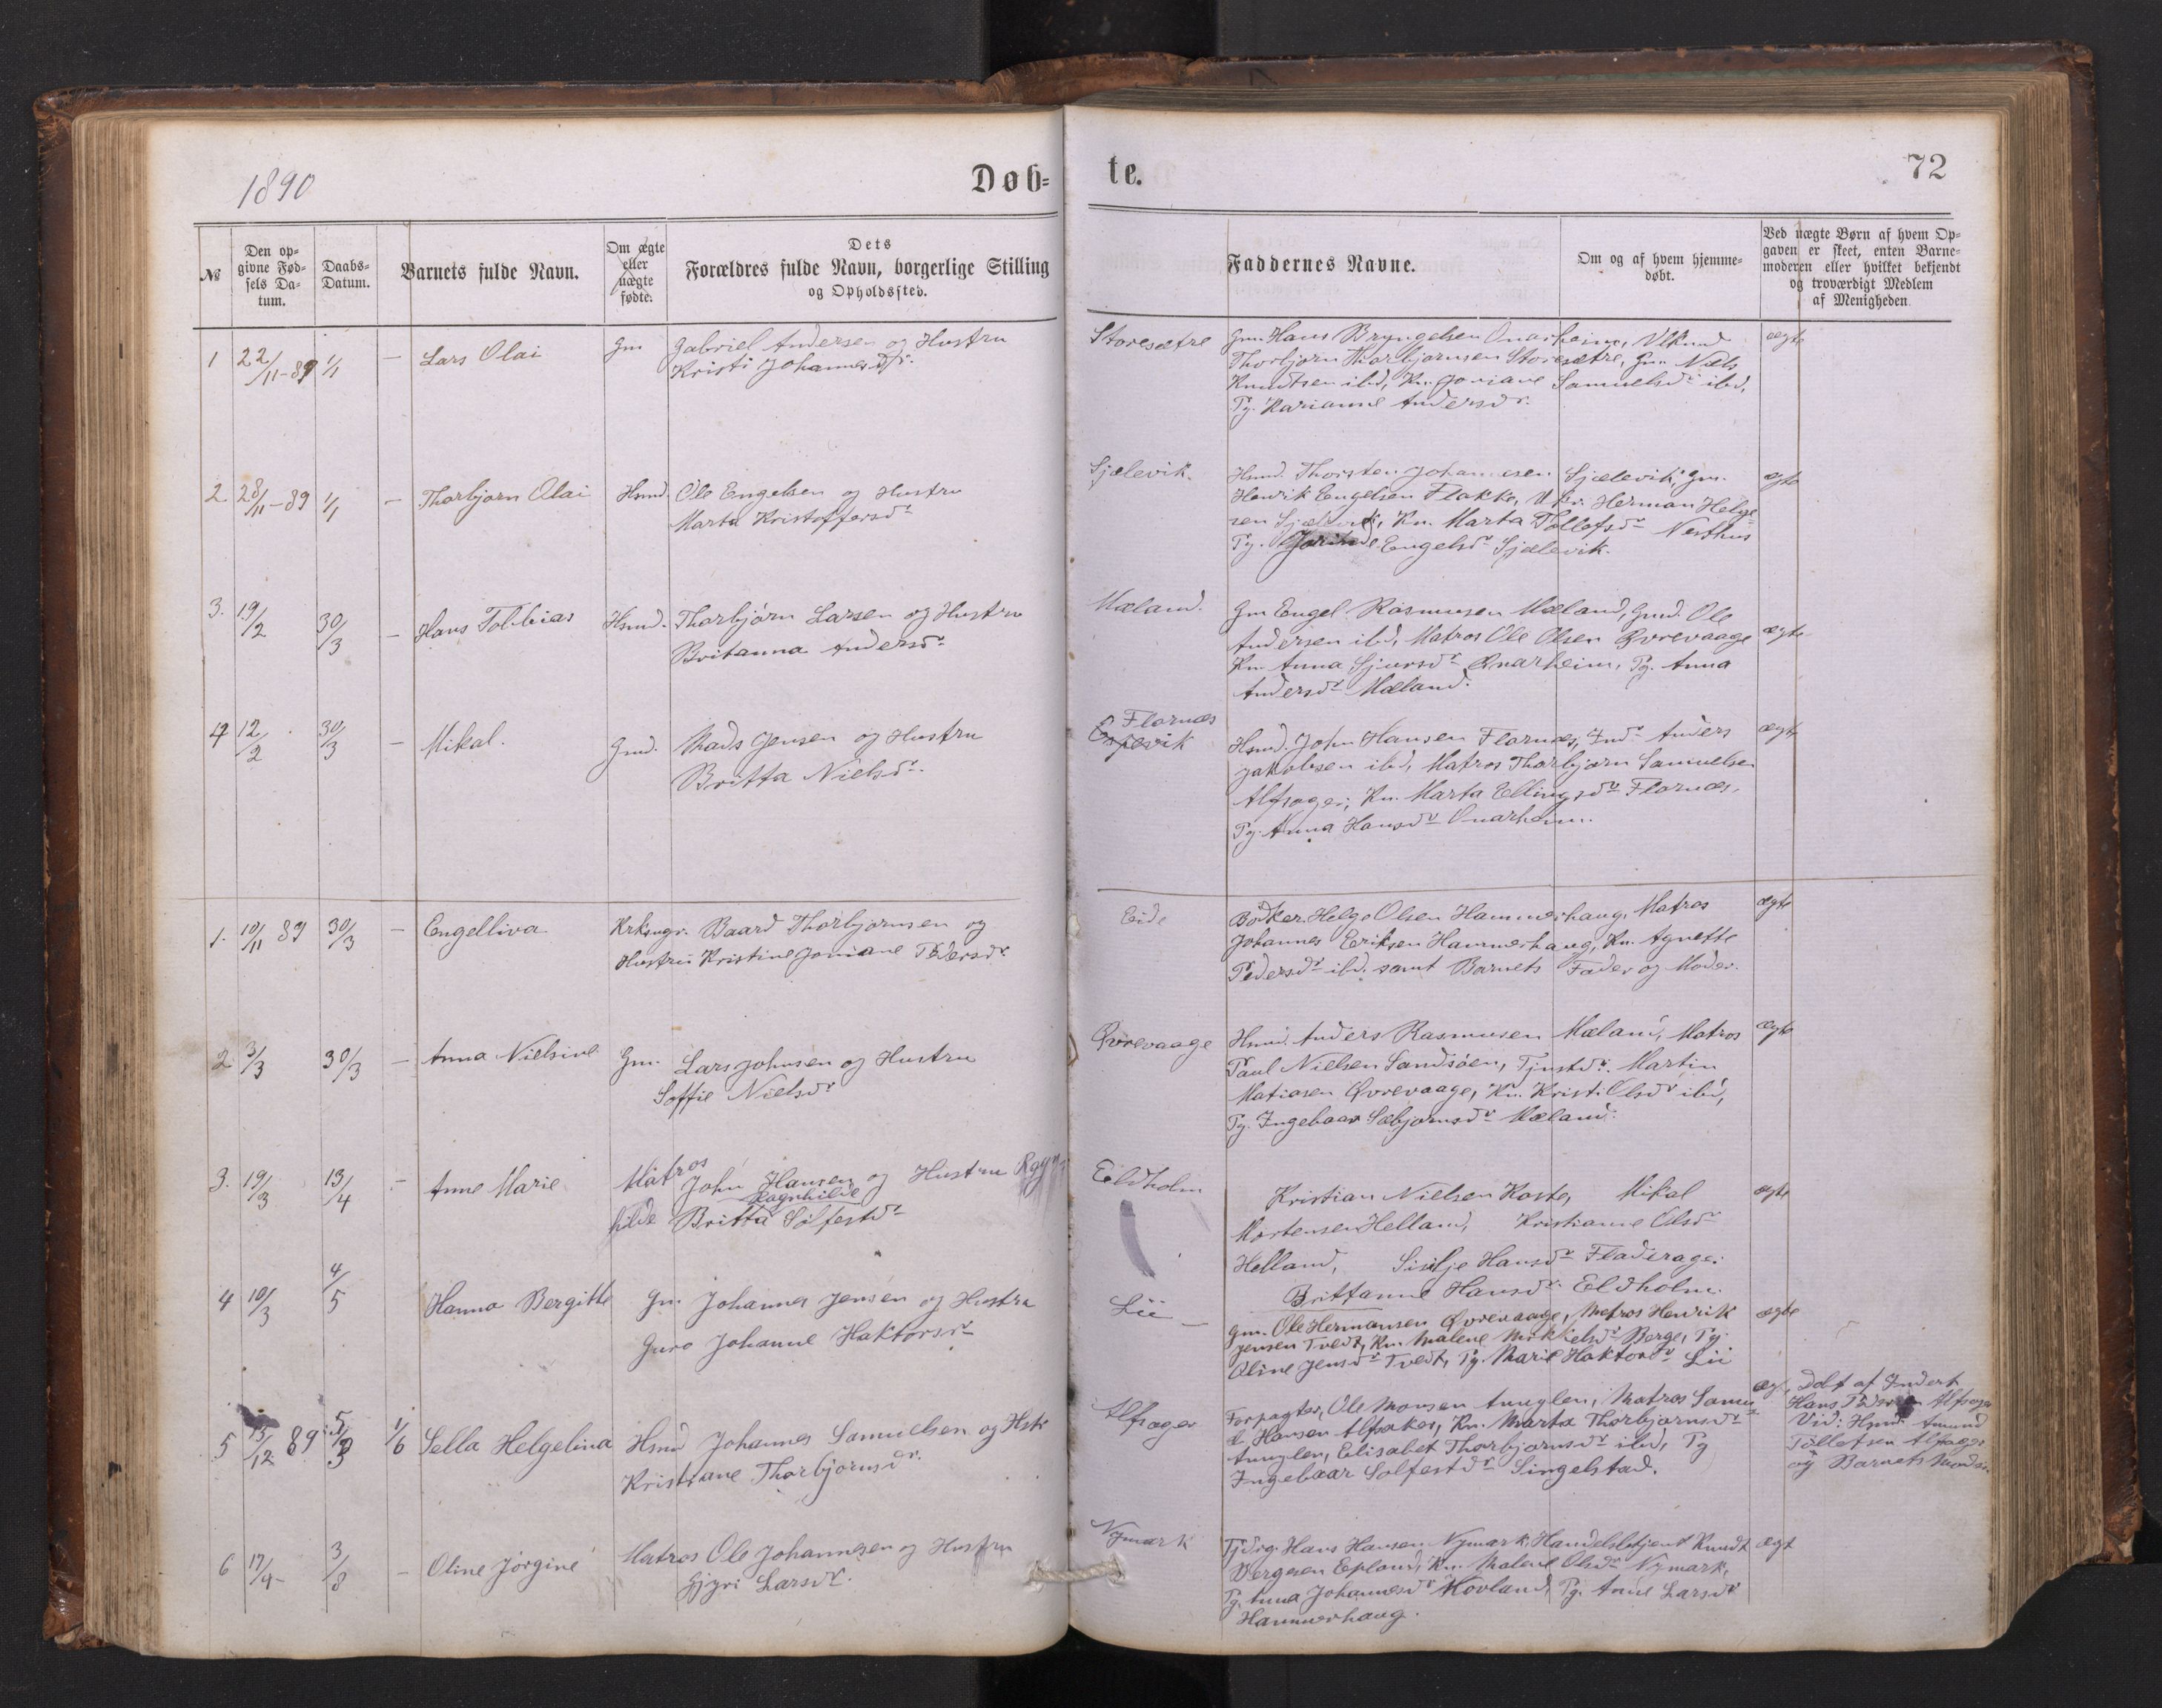 1890
Døb=
te.
72
№
Den op=
givne Fød=
sels Da=
tum.
Daabs=
Datum.
Barnets fulde Navn.
Om ægte
eller
uægte
fødte.
Dets
Forældres fulde Navn, borgerlige Stilling
og Opholdssted.
Faddernes Navne.
Om og af hvem hjemme=
døbt.
Ved uægte Børn af hvem Op=
gaven er skeet, enten Barne=
moderen eller hvilket bekjendt
og troværdigt Medlem
af Menigheden.
1 22/11-89 1/1 – Lars Olai Gm Gabriel Andersen og Hustru
Kristi Johannesdr.
Storesætre
Gm. Hans Bryngelsen Onarheim, Ukmd
Thorbjørn Thorbjørnsen Storesætre, Gm. Niels
Knudtsen ibd, Kn. Joriane Samuelsdr ibd,
Pg. Karianne Andersdr.
ægte
2 28/11-89 1/1 – Thorbjørn Olai Hsmd. Ole Engelsen og Hustru
Marta Kristoffersdr
Sjælevik.
Hsmd. Thorsten Johannesen Sjælevik, Gm.
Henrik Engelsen Flakke, Herman Helge=
sen Sjælevik, Kn. Marta Tollefsdr Nesthus
Pg. Engelsdr Sjælevik.
ægte
3. 19/2 30/3 – Hans Tobbias Hsmd. Thorbjørn Larsen og Hustru
Britanna Andersdr
Mæland.
Gm Engel Rasmusen Mæland, Gmd. Ole
Andersen ibd, Matros Ole Olsen Qvrevaage
Kn. Anna Sjursdr Onarheim, Pg. Anna
Andersdr Mæland.
ægte
4 12/2 30/3 – Mikal. Gmd. Mads Jensen og Hustru
Britta Nielsdr.
Flornæs
Espevik
Hsmd. John Hansen Flornæs, Indr Anders
Jakobsen ibd, Matros Thorbjørn Samuelsen
Alfsager, Kn. Marta Ellingsdr Flornæs,
Pg. Anna Hansdr Onarheim.
ægte
1. 10/11 89 30/3 – Engelliva Krksngr. Baard Thorbjørnsen og
Hustru Kristine Joniane Pedersdr.
Eide
Bødker. Helge Olsen Hammerhaug, Matros
Johannes Eriksen Hammerhaug, Kn. Agnette
Pedersdr ibd. samt Barnets Fader og Moder.
ægte
2 3/3 30/3 – Anna Nielsine Gm. Lars Johnsen og Hustru
Soffie Nielsdr
Qvrevaage
Hsmd. Anders Rasmusen Mæland, Matros
Paul Nielsen Sandsøen, Tjnstdr. Martin
Matiasen Qvrevaage, Kn. Kristi Olsdr ibd,
Pg. Ingebaar Sæbjørnsdr Mæland.
ægte
3. 19/3 13/4 – Anne Marie Matros John Hansen og Hustru
Ragnhilde
hilde Britta Solfestdr
Eldholm
Kristian Nielsen Koste, Mikal
Mortensen Helland, Kristianne Olsdr
Helland, Sisilje Hansdr Fladerage.
Brittanne Hansdr. Eldholm.
ægte
4 10/3 4/5 Hanna Bergitte Gm. Johannes Jensen og Hustru
Guro Johanne Haktorsdr
Lii –
Gm. Ole Hermansen Qvrevaage, Matros Henrik
Jensen Tvedt, Kn. Malene Mikkelsdr Berge, Pg.
Oline Jensdr Tvedt, Pg. Marie Haktorsdr Lii
ægte
5 15/12 89 1/6 Sella Helgelina Hsmd Johannes Samuelsen og Hstr
Kristiane Thorbjørnsdr.
Alfsager
Forpagter, Ole Monsen Anuglen, Matros Samu=
el Hansen Alfsaker, Kn. Marta Thorbjørnsdr
Anuglen, Elisabet Thorbjørnsdr ibd, Pg
Ingebaar Solfestdr Singelstad.
æg.
Døbt af Inderst
Hans Alfsager
Vid: Hsmd. Amund
Tollefsen Alfsager
og Barnets
6 17/4- 3/8 – Oline Jørgine Matros Ole Johannesen og Hustru
Gjyri Larsdr.
Nymark
Hans Hansen Nymark, Handelsbetjent Knudt
Bergesen Epland, Kn. Malene Olsdr Nymark,
Pg. Anna Johannesdr Hovland, Pg. Anne Larsdr
Hammerhaug.
ægt